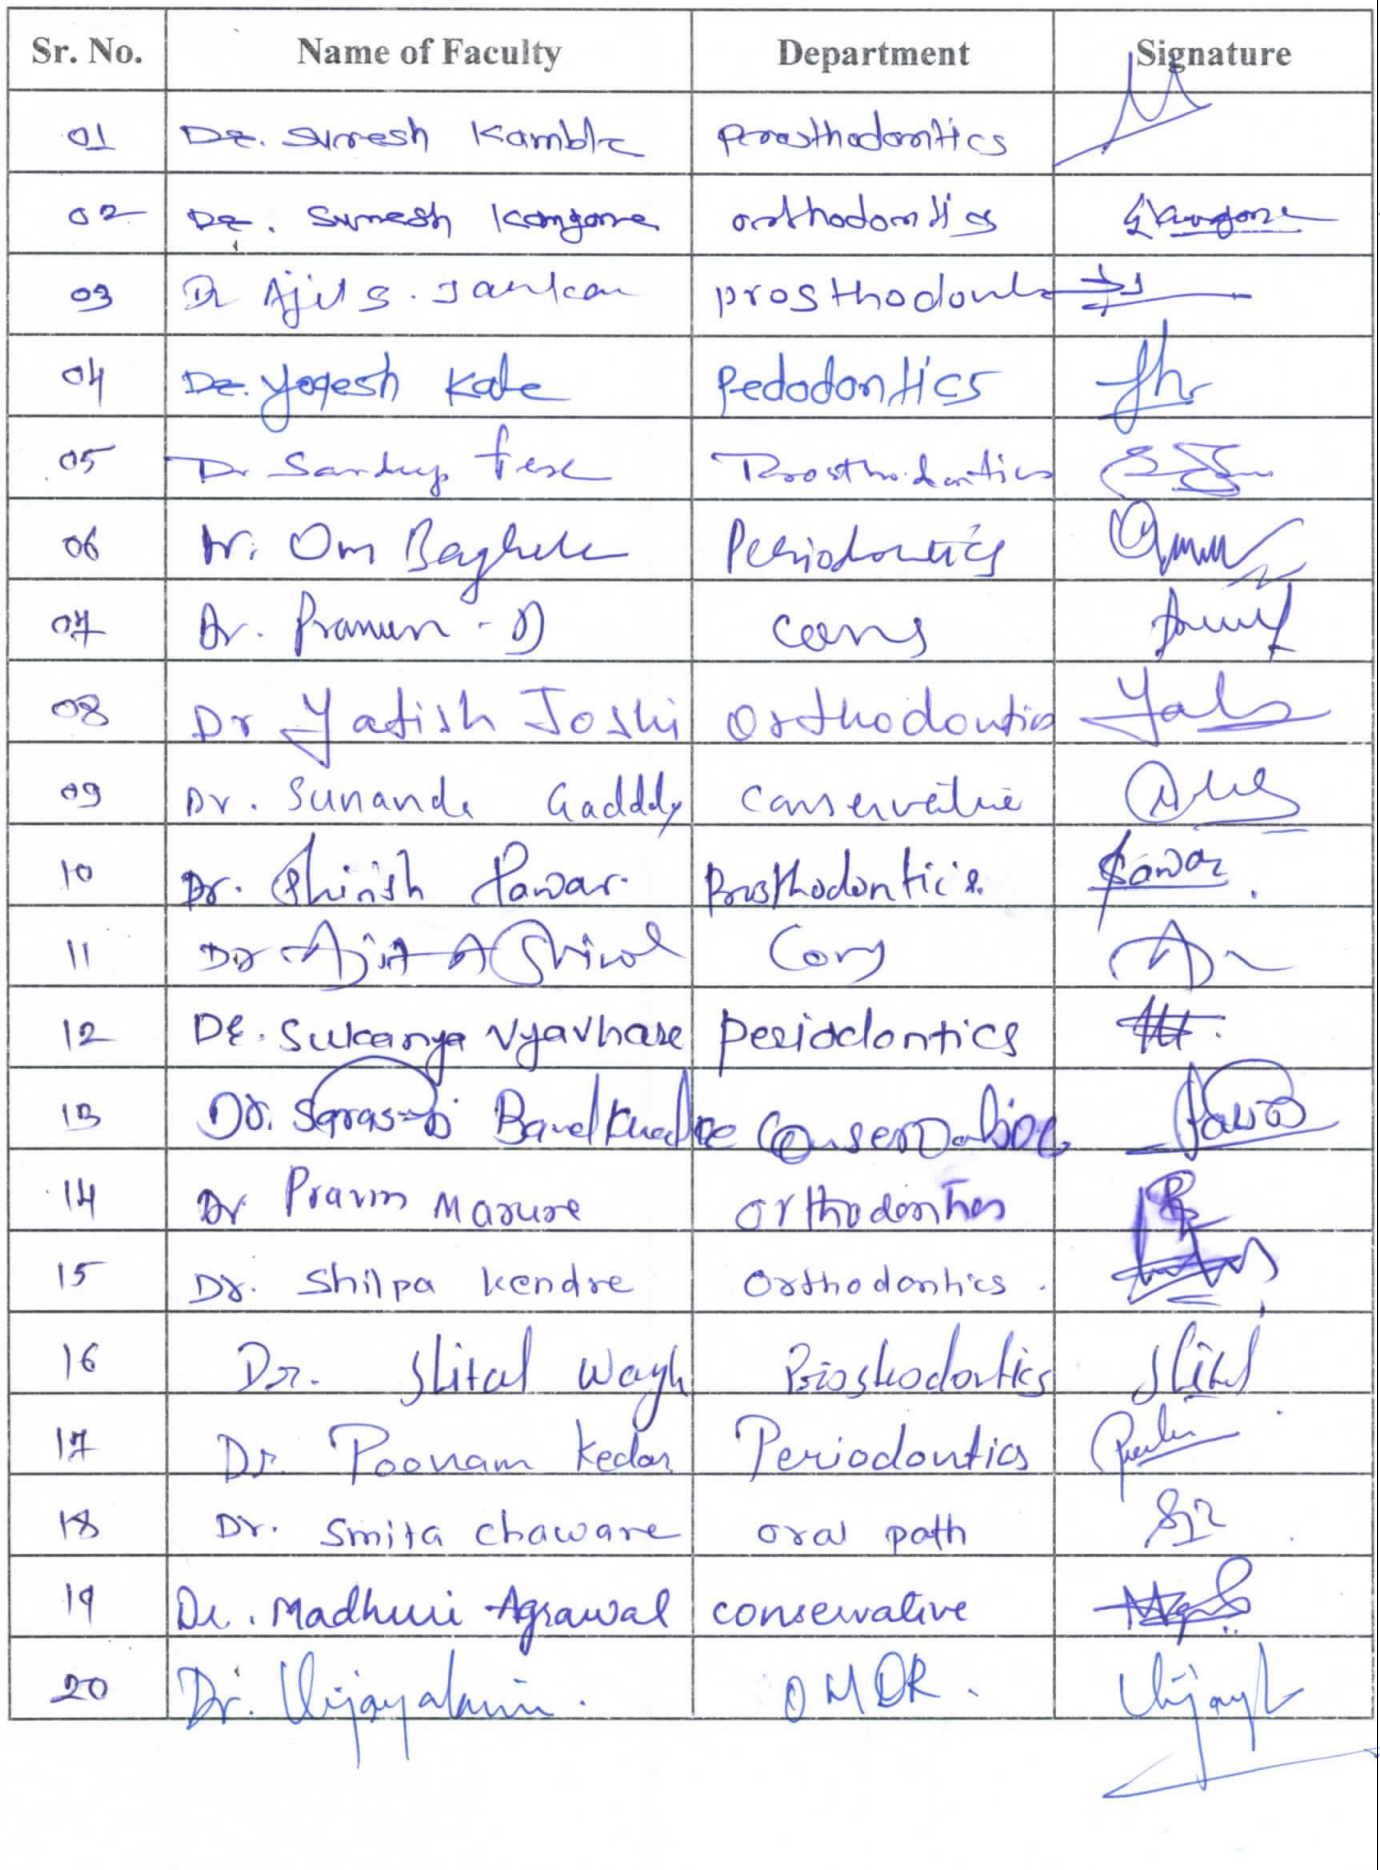 Sr. No. Name of Faculty Department Signature
01 Dr. Suresh Kamble prosthodontics
02 Dr. Suresh Kangane orthodontics Skangane
03 Dr Ajit S. Jankar prosthodont
04 Dr. Yogesh Kale pedodontics
05 Dr Sandip Prosthodontics
06 Dr. Om Baghele Periodontics
07 Dr. Praveen - D cons
08 Dr Yatish Joshi Orthodontics
09 Dr. Sunanda Gadddy conservative
10 Dr. Shirish Pawar. Prosthodontics. Spawar
11 Dr Ajit A Shirol Cons
12 Dr. Sukanya Vyavhare periodontics
13 Dr. Conservative
14 Dr Pravin Marure orthodontics
15 Dr. Shilpa Kendre Orthodontics.
16 Dr. Shital Wagh Prosthodontics Shital
17 Dr. Poonam Kedar Periodontics
18 Dr. Smita Chaware oral path
19 Dr. Madhuri Agrawal conservative
20 Dr. OMDR.